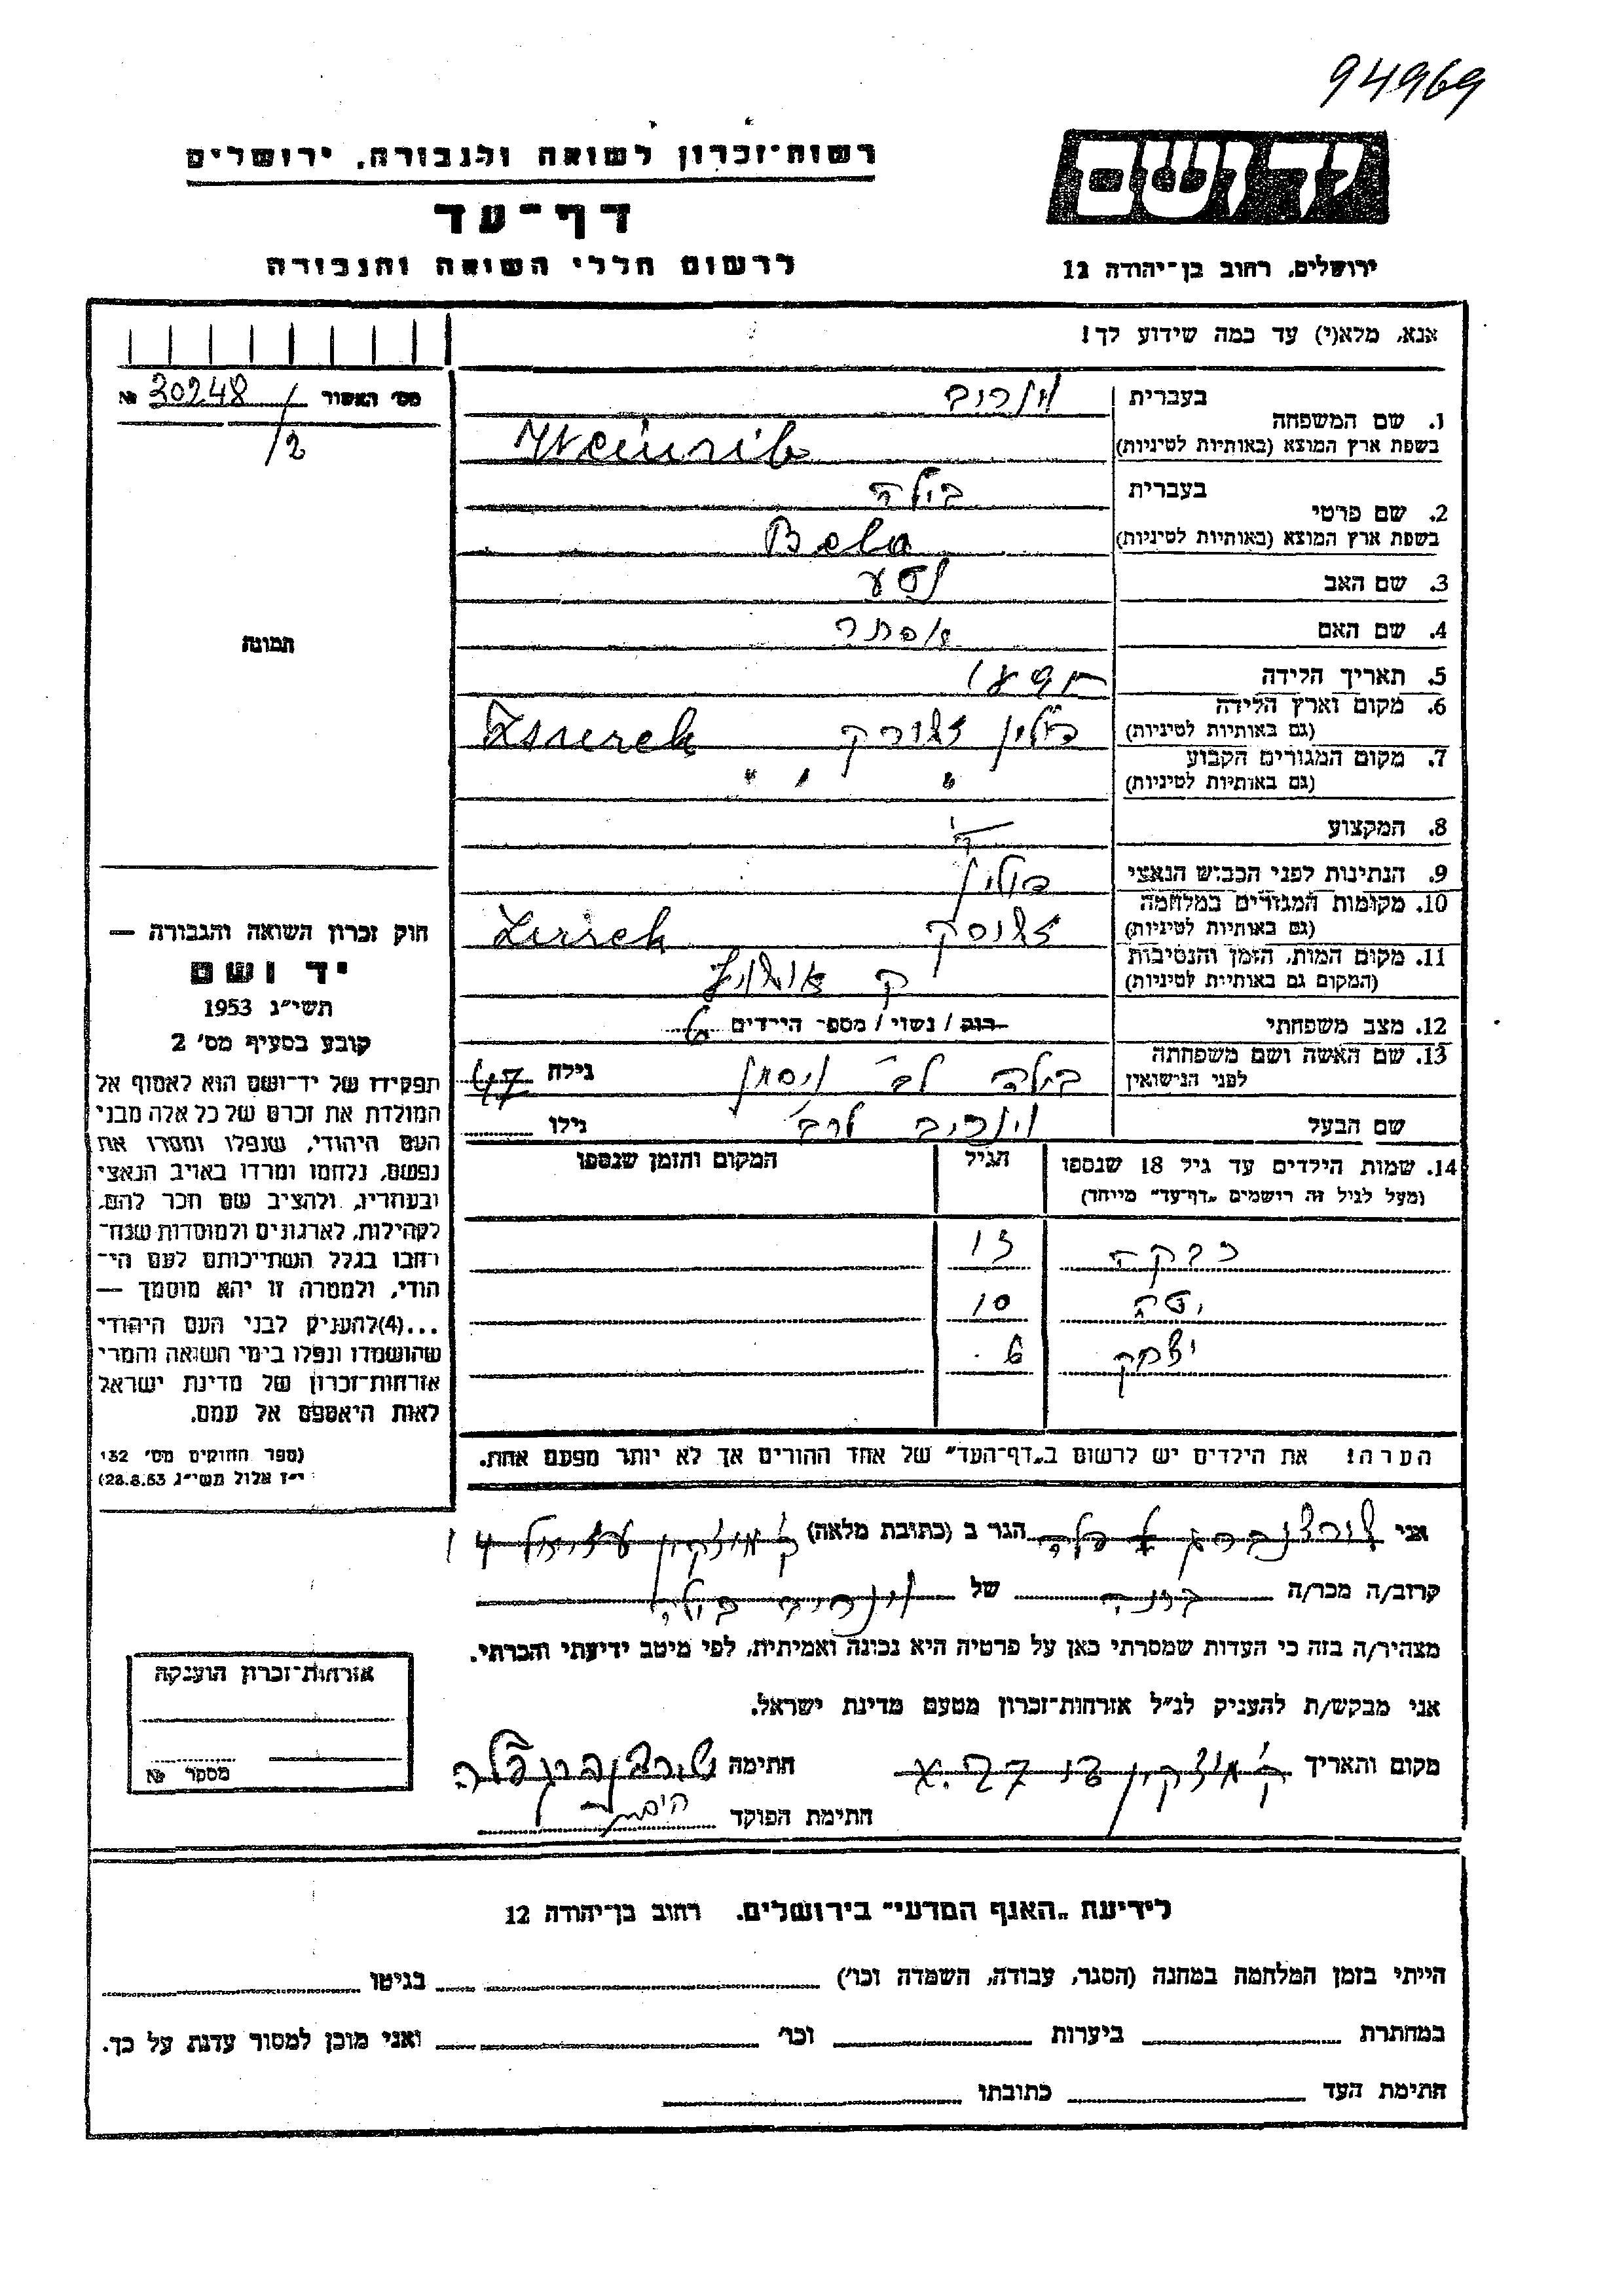 94969
יד ושם
ירושלים, רחוב בן־יהודה 12
רשות־זכרון לשואה ולגבורה, ירושלים
דף־עד
לרשום חללי השואה והגבורה
אנא, מלא(י) עד כמה שידוע לך!
מס׳ האשור 30248 №
/2
תמונה
חוק זכרון השואה והגבורה —
יד ושם
תשי״ג 1953
קובע בסעיף מס׳ 2
תפקידו של יד־ושם הוא לאסוף אל
המולדת את זכרם של כל אלה מבני
העם היהודי, שנפלו ומסרו את
נפשם, נלחמו ומרדו באויב הנאצי
ובעוזריו, ולהציב שם וזכר להם,
לקהילות, לארגונים ולמוסדות שנח־
רחבו בגלל השתייכותם לעם הי־
הודי, ולמטרה זו יהא מוסמך —
...(4)להעניק לבני העם היהודי
שהושמדו ונפלו בימי השואה והמרי
אזרחות־זכרון של מדינת ישראל
לאות היאספם אל עמם.
(ספר החוקים מס׳ 132
י״ז אלול תשי״ג 28.8.53)
1. שם המשפחה
בעברית וינריב
בשפת ארץ המוצא (באותיות לטיניות) Weinrib
2. שם פרטי
בעברית בילה
בשפת ארץ המוצא (באותיות לטיניות) Bela
3. שם האב נסע
4. שם האם אסתר
5. תאריך הלידה
6. מקום וארץ הלידה פולין
(גם באותיות לטיניות)
7. מקום המגורים הקבוע " " "
(גם באותיות לטיניות)
8. המקצוע
9. הנתינות לפני הכבוש הנאצי פולין
10. מקומות המגורים במלחמה
(גם באותיות לטיניות)
11. מקום המות, הזמן והנסיבות
(המקום גם באותיות לטיניות)
12. מצב משפחתי רוק / נשוי / מספר הילדים
13. שם האשה ושם משפחתה בילה לב׳ ניסמן גילה 47
לפני הנישואין
שם הבעל וינריב לרב׳ גילו
14. שמות הילדים עד גיל 18 שנספו הגיל המקום והזמן שנספו
(מעל לגיל זה רושמים „דף־עד״ מיוחד)
רבקה 13
יטה 10
יצחק 6
הערה! את הילדים יש לרשום ב„דף־העד״ של אחד ההורים אך לא יותר מפעם אחת.
אני הגר ב (כתובת מלאה) ק׳ מוצקין 14
קרוב/ה מכר/ה של וינריב בילה
מצהיר/ה בזה כי העדות שמסרתי כאן על פרטיה היא נכונה ואמיתית, לפי מיטב ידיעתי והכרתי.
אני מבקש/ת להעניק לנ״ל אזרחות־זכרון מטעם מדינת ישראל.
מקום ותאריך ק׳ מוצקין חתימה
חתימת הפוקד
אזרחות־זכרון הוענקה
מספר №
לידיעת „האגף המדעי״ בירושלים. רחוב בן־יהודה 12
הייתי בזמן המלחמה במחנה (הסגר, עבודה, השמדה וכו׳) בגיטו
במחתרת ביערות וכו׳ ואני מוכן למסור עדות על כך.
חתימת העד כתובתו